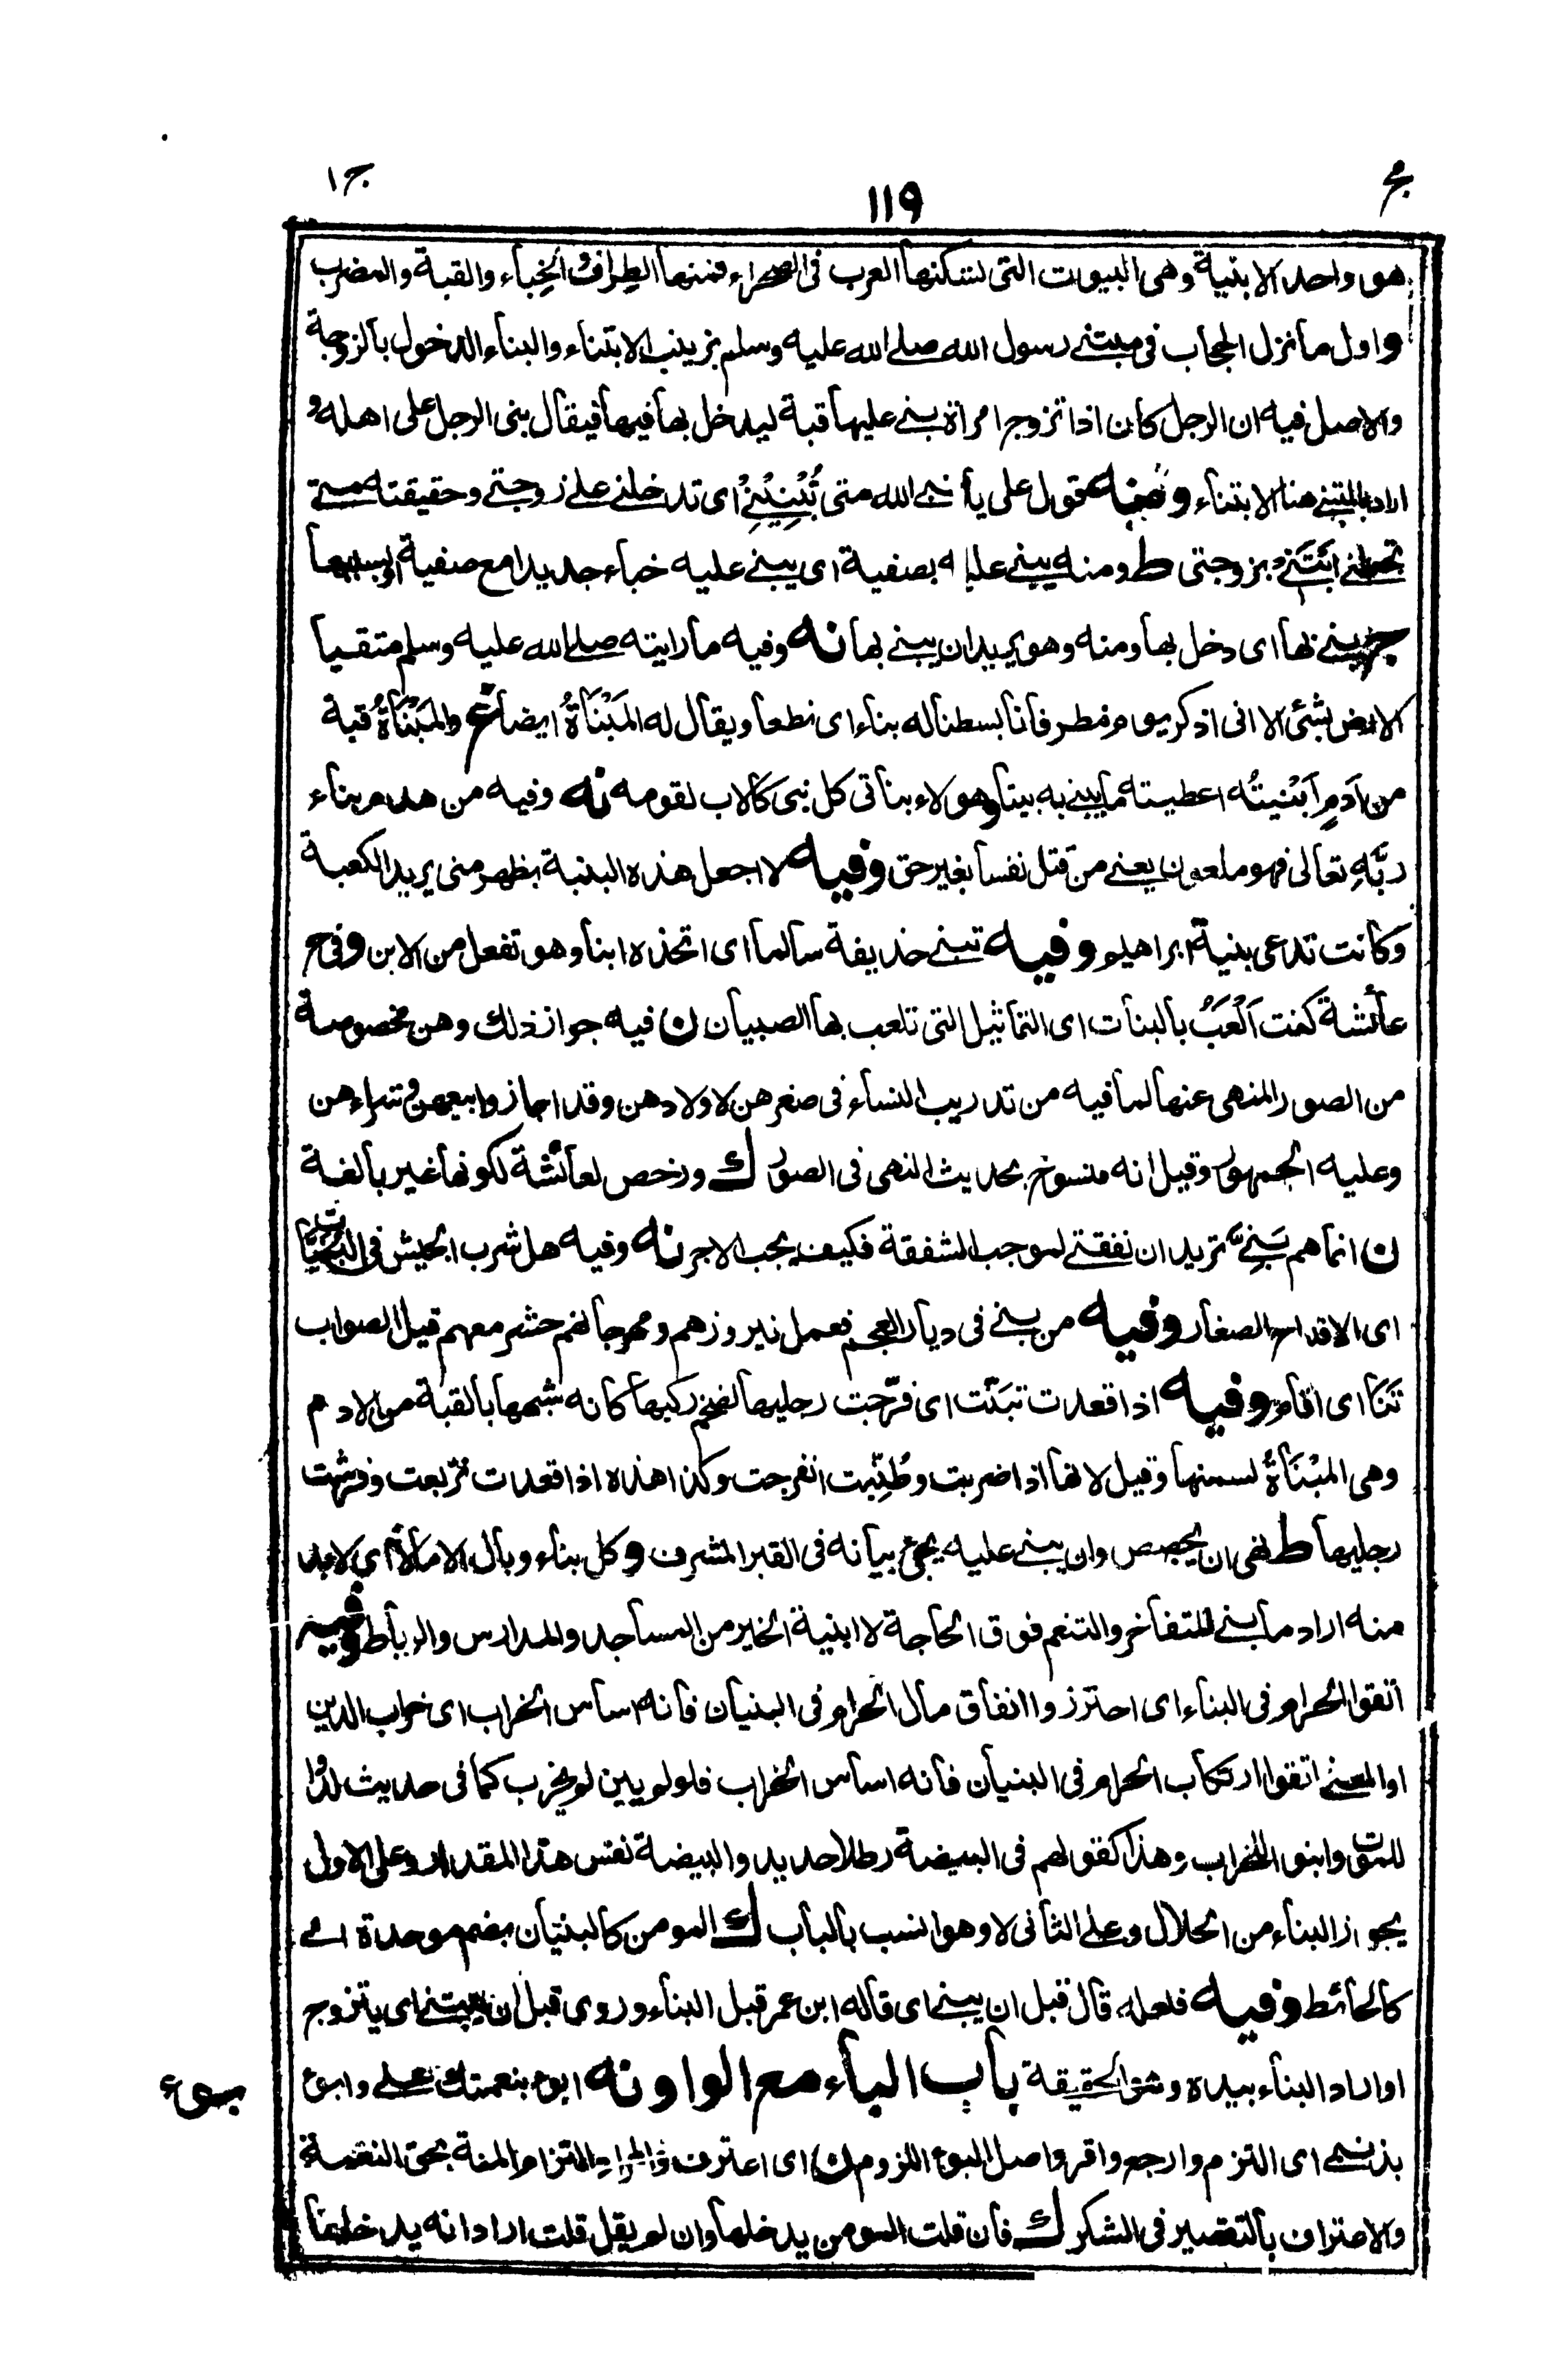 مج
١١٩
ج ١
هو واحد الابنية وهى البيوت التى تسكنها العرب فى الصحراء فمنها الطِراف والخِباء والقبة والمضرب
و اول ما نزل الحجاب فى مبتنى رسول الله صلى الله عليه وسلم بزينب الابتناء والبناء الدخول بالزوجة
والاصل فيه ان الرجل كان اذا تزوج امرأة بنى عليها قبة ليدخل بها فيها فيقال بنى الرجل على اهله و
اراد بالمبتنى هنا الابتناء ومنه قول على يا نبى الله متى تُبْنِيْنِىْ اى تدخلنى على زوجتى وحقيقته متى
تجعلنى ابْتَنِى بزوجتى ط ومنه يبنى عليه بصفية اى يبنى عليه خباء جديدا مع صفية او بسببها
ج يبنى بها اى دخل بها ومنه وهو يريد ان يبنى بها نه وفيه ما رايته صلى الله عليه وسلم متقيا
الارض بشئ الا انى اذكر يوم مطر فانا بسطنا له بناء اى نطعا ويقال له المَبْنَاةُ ايضا غ والمَبْنَاةُ قبة
من اَدَمٍ اَبْنيتُه اعطيته ما يبنى به بيتا وهولاء بناتى كل نبى كالاب لقومه نه وفيه من هدم بناء
ربَّهِ تعالى فهو ملعون يعنى من قتل نفسا بغير حق وفيه لا اجعل هذه البنية بظهر منى يريد الكعبة
وكانت تدعى بنية ابراهيم وفيه تبنى حذيفة سالما اى اتخذه ابنا وهو تفعل من الابن وفى ح
عائشة كنت اَلْعَبُ بالبنات اى التماثيل التى تلعب بها الصبيان ن فيه جواز ذلك وهن مخصوصة
من الصور المنهى عنها لما فيه من تدريب النساء فى صغرهن لاولادهن وقد اجازوا بيعهن وشراءهن
وعليه الجمهور وقيل انه منسوخ بحديث النهى فى الصور ك ورخص لعائشة لكونها غير بالغة
ن انما هم بَنِىَّ تريد ان نفقتى لموجب الشفقة فكيف يجب الاجر نه وفيه هل شرب الجيش فى البُنَيَّات
اى الاقداح الصغار وفيه من بنى فى ديار العجم فعمل نيروزهم ومهرجانهم حشر معهم قيل الصواب
تَنَأ اى اقام وفيه اذا قعدت تبَنّت اى فرّجت رجليها لضخم ركبها كانه شبهها بالقبة من الادم
وهى المبْنَاةُ لسمنها وقيل لانها اذا ضربت وطُنِّبت انفرجت وكذا هذه اذا قعدت تربعت وفرشت
رجليها ط نهى ان يجصص وان يبنى عليه يجئ بيانه فى القبر المشرف و كل بناء وبال الا مالا اى لابد
منه اراد ما بنى للتفاخر والتنعم فوق الحاجة لا ابنية الخير من المساجد والمدارس والرباط وفيه
اتقوا الحرام فى البناء اى احترزوا انفاق مال الحرام فى البنيان فانه اساس الخراب اى خراب الدين
او المعنى اتقوا ارتكاب الحرام فى البنيان فانه اساس الخراب فلو لم يبن لم يخرب كما فى حديث لدوا
للموت وابنوا للخراب وهذا كقولهم فى البيضة رطلا حديد والبيضة نفس هذا المقدار وعلى الاول
يجوز البناء من الحلال وعلى الثانى لا وهو انسب بالباب ك المومن كالبنيان بضم موحدة اى
كالحائط وفيه فلعله قال قبل ان يبنى اى قاله ابن عمر قبل البناء وروى قبل ان يبتنى اى يتزوج
او اراد البناء بيده وهو الحقيقة باب الباء مع الواو نه ابوء بنعمتك على وابوء
بذنبى اى التزم وارجع واقر واصل البوء اللزوم ن اى اعترف والمراد التزام المنة بحق النعمة
والاعتراف بالتقصير فى الشكر ك فان قلت المومن يدخلها وان لم يقل قلت اراد انه يدخلها
بوء